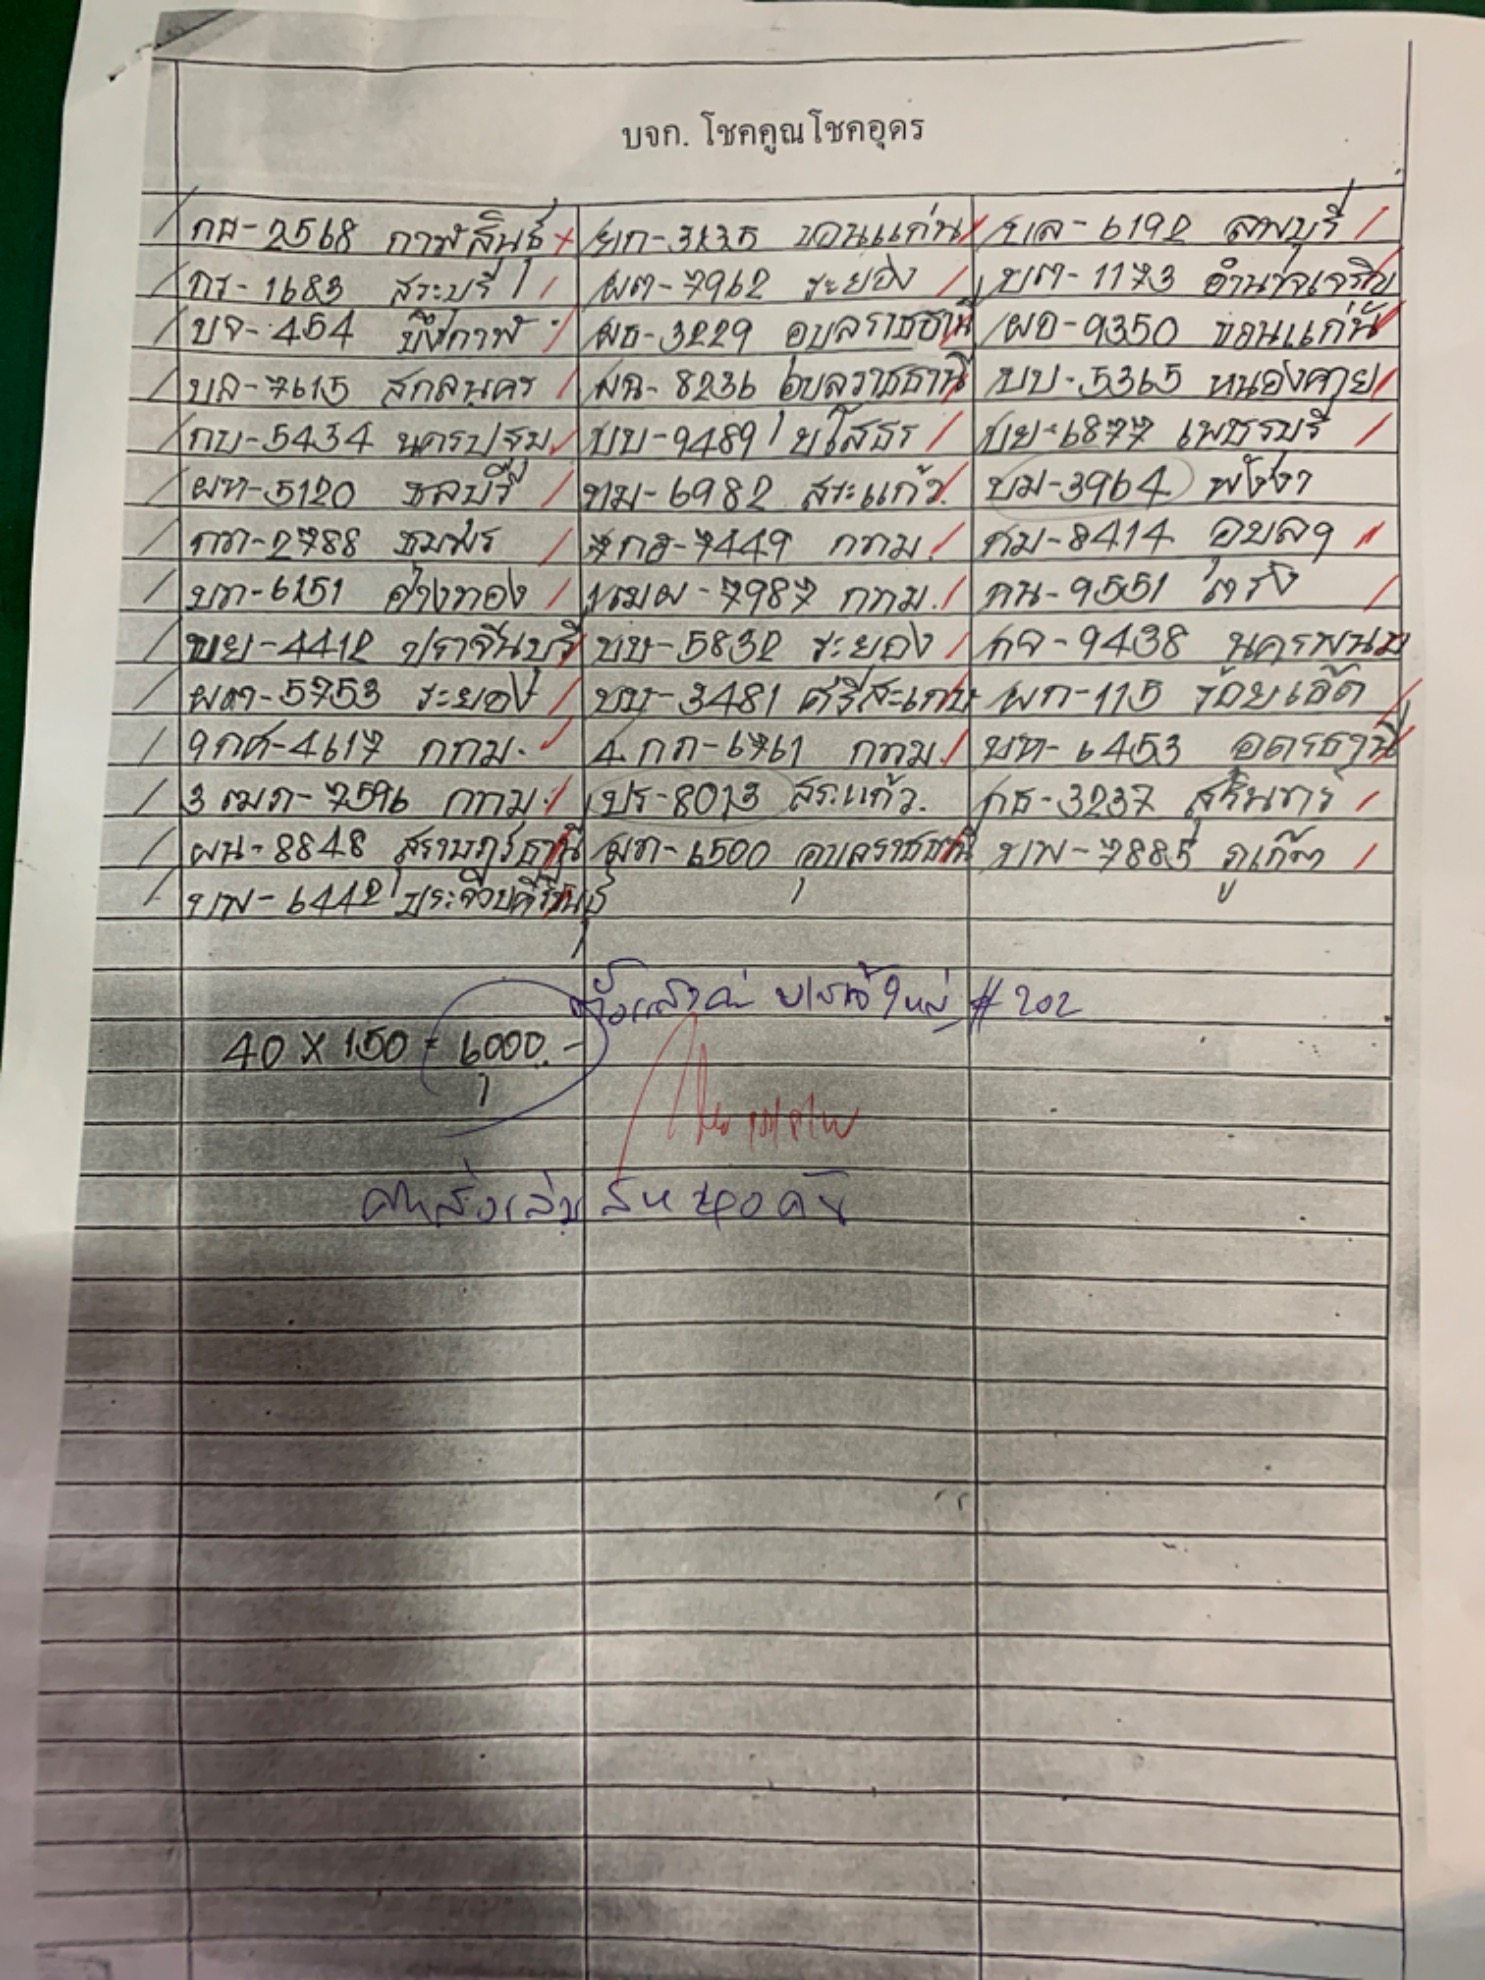 บจก. โชคคูณโชคอุดร
กส-2568 กาฬสินธุ์ ยก-3235 ขอนแก่น บล-6192 ลพบุรี
กร-1683 สระบุรี ผต-7962 ระยอง บต-1173 อำนาจเจริญ
บจ-454 บึงกาฬ ผธ-3229 อุบลราชธานี ผอ-9350 ขอนแก่น
บล-7615 สกลนคร ผฉ-8236 อุบลราชธานี บบ-5365 หนองคาย
กบ-5434 นครปฐม บบ-9489 ยโสธร บย-6877 เพชรบุรี
ผท-5120 ชลบุรี ทม-6982 สระแก้ว. บม-3964 พังงา
กท-2788 ชุมพร 7กอ-7449 กทม. กม-8414 อุบลฯ
บก-6151 อ่างทอง 1ฒผ-7987 กทม. กน-9551 ตรัง
ขย-4412 ปราจีนบุรี บบ-5832 ระยอง กจ-9438 นครพนม
ผต-5753 ระยอง บบ-3481 ศรีสะเกษ ผก-115 ร้อยเอ็ด
9กศ-4617 กทม. 4กภ-6761 กทม. บท-6453 อุดรธานี
3ฒภ-7596 กทม. ปร-8013 สระแก้ว. กธ-3237 สุรินทร์
ผน-8848 สุราษฎร์ธานี ผก-6500 อุบลราชธานี บพ-7885 ภูเก็ต
บพ-6442 ประจวบคีรีขันธ์
# 202
40 X 150 = 6000.-